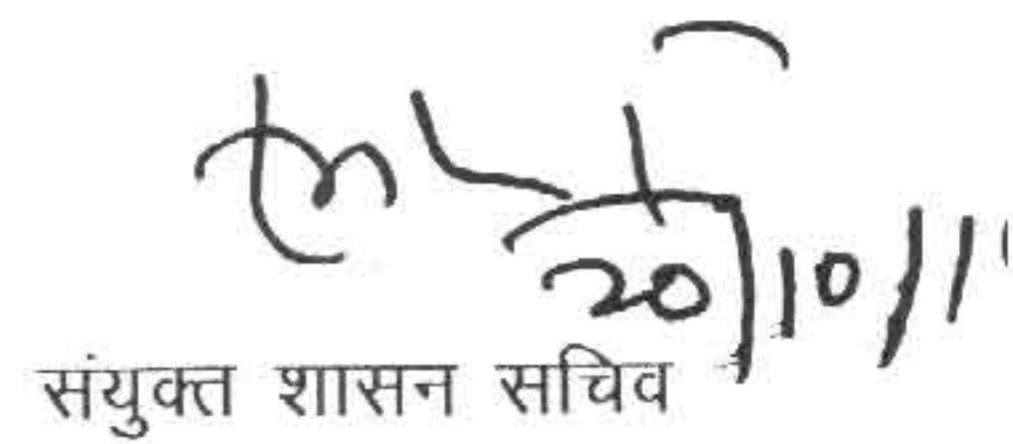 20/10/11
संयुक्त शासन सचिव